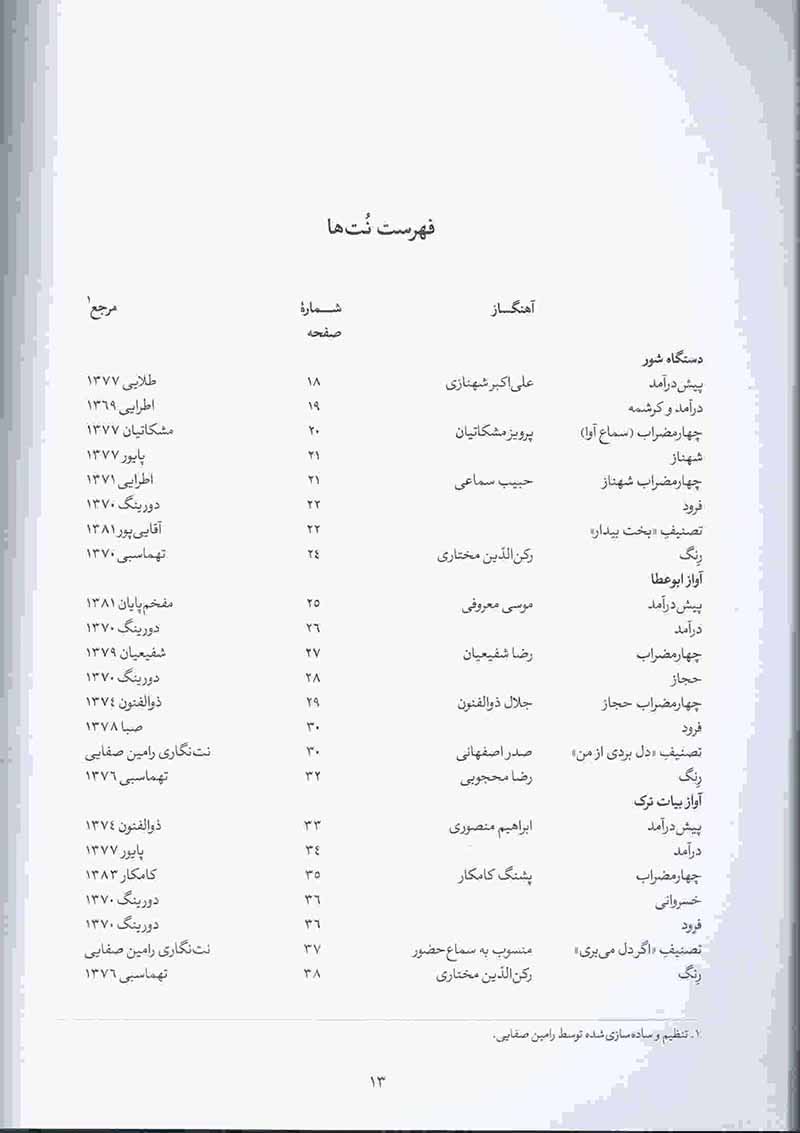 فهرست نُت‌ها
آهنگساز شمارهٔ مرجع۱
صفحه
دستگاه شور
پیش‌درآمد علی‌اکبر شهنازی ۱۸ طلایی ۱۳۷۷
درآمد و کرشمه ۱۹ اطرایی ۱۳۶۹
چهارمضراب (سماع آوا) پرویز مشکاتیان ۲۰ مشکاتیان ۱۳۷۷
شهناز ۲۱ پایور ۱۳۷۷
چهارمضراب شهناز حبیب سماعی ۲۱ اطرایی ۱۳۷۱
فرود ۲۲ دورینگ ۱۳۷۰
تصنیفِ «بخت بیدار» ۲۲ آقایی‌پور ۱۳۸۱
رِنگ رکن‌الدّین مختاری ۲۴ تهماسبی ۱۳۷۰
آواز ابوعطا
پیش‌درآمد موسی معروفی ۲۵ مفخم‌پایان ۱۳۸۱
درآمد ۲۶ دورینگ ۱۳۷۰
چهارمضراب رضا شفیعیان ۲۷ شفیعیان ۱۳۷۹
حجاز ۲۸ دورینگ ۱۳۷۰
چهارمضراب حجاز جلال ذوالفنون ۲۹ ذوالفنون ۱۳۷۴
فرود ۳۰ صبا ۱۳۷۸
تصنیفِ «دل بردی از من» صدر اصفهانی ۳۰ نت‌نگاری رامین صفایی
رِنگ رضا محجوبی ۳۲ تهماسبی ۱۳۷۶
آواز بیات ترک
پیش‌درآمد ابراهیم منصوری ۳۳ ذوالفنون ۱۳۷۴
درآمد ۳۴ پایور ۱۳۷۷
چهارمضراب پشنگ کامکار ۳۵ کامکار ۱۳۸۳
خسروانی ۳۶ دورینگ ۱۳۷۰
فرود ۳۶ دورینگ ۱۳۷۰
تصنیفِ «اگر دل می‌بری» منسوب به سماع‌حضور ۳۷ نت‌نگاری رامین صفایی
رِنگ رکن‌الدّین مختاری ۳۸ تهماسبی ۱۳۷۶
۱. تنظیم و ساده‌سازی‌شده توسط رامین صفایی.
۱۳